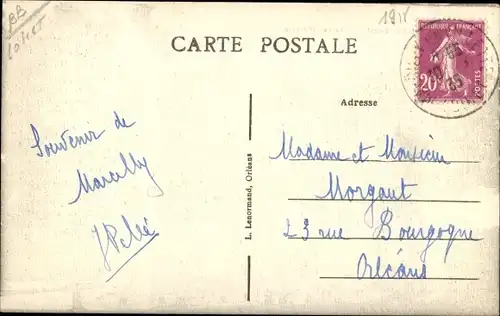 BB
Loiret
1915
CARTE POSTALE
REPUBLIQUE FRANÇAISE
20c
POSTES
35
Adresse
Souvenir de
Marcilly
L. Lenormand, Orléans
Madame et Monsieur
Morgaut
23 rue Bourgogne
Orléans